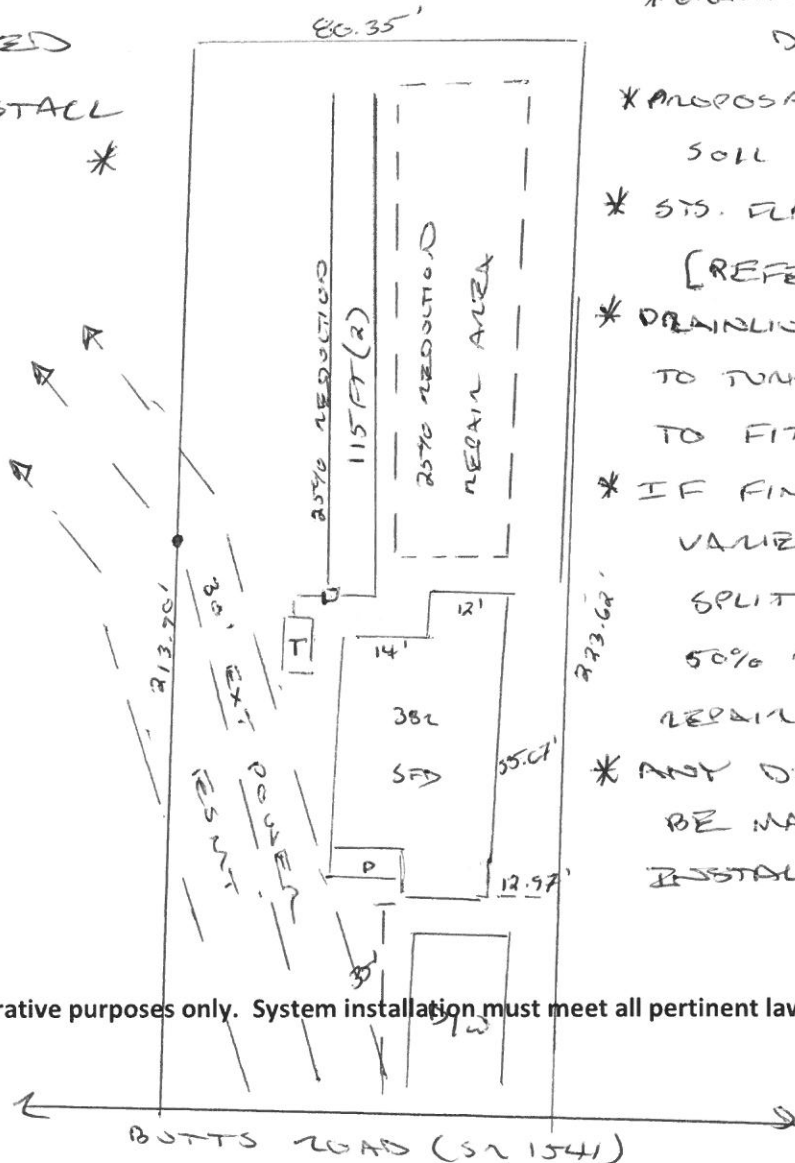 80.35'
ED
STALL
*
D
* PROPOSA
SOIL
* STS. FLA
[REFE
* DRAINLIN
TO TURN
TO FIT
* IF FIN
VARIE
SPLIT
50%
REPAIR
* ANY D
BE MA
INSTAL
25% REDUCTION
115 FT (2)
25% REDUCTION
REPAIR AREA
213.90'
223.62'
EXT
POWER
ESMT
T
14'
12'
3BR
SFD
55.67'
P
12.97'
D/W
rative purposes only. System installation must meet all pertinent law
BUTTS ROAD (SR 1541)